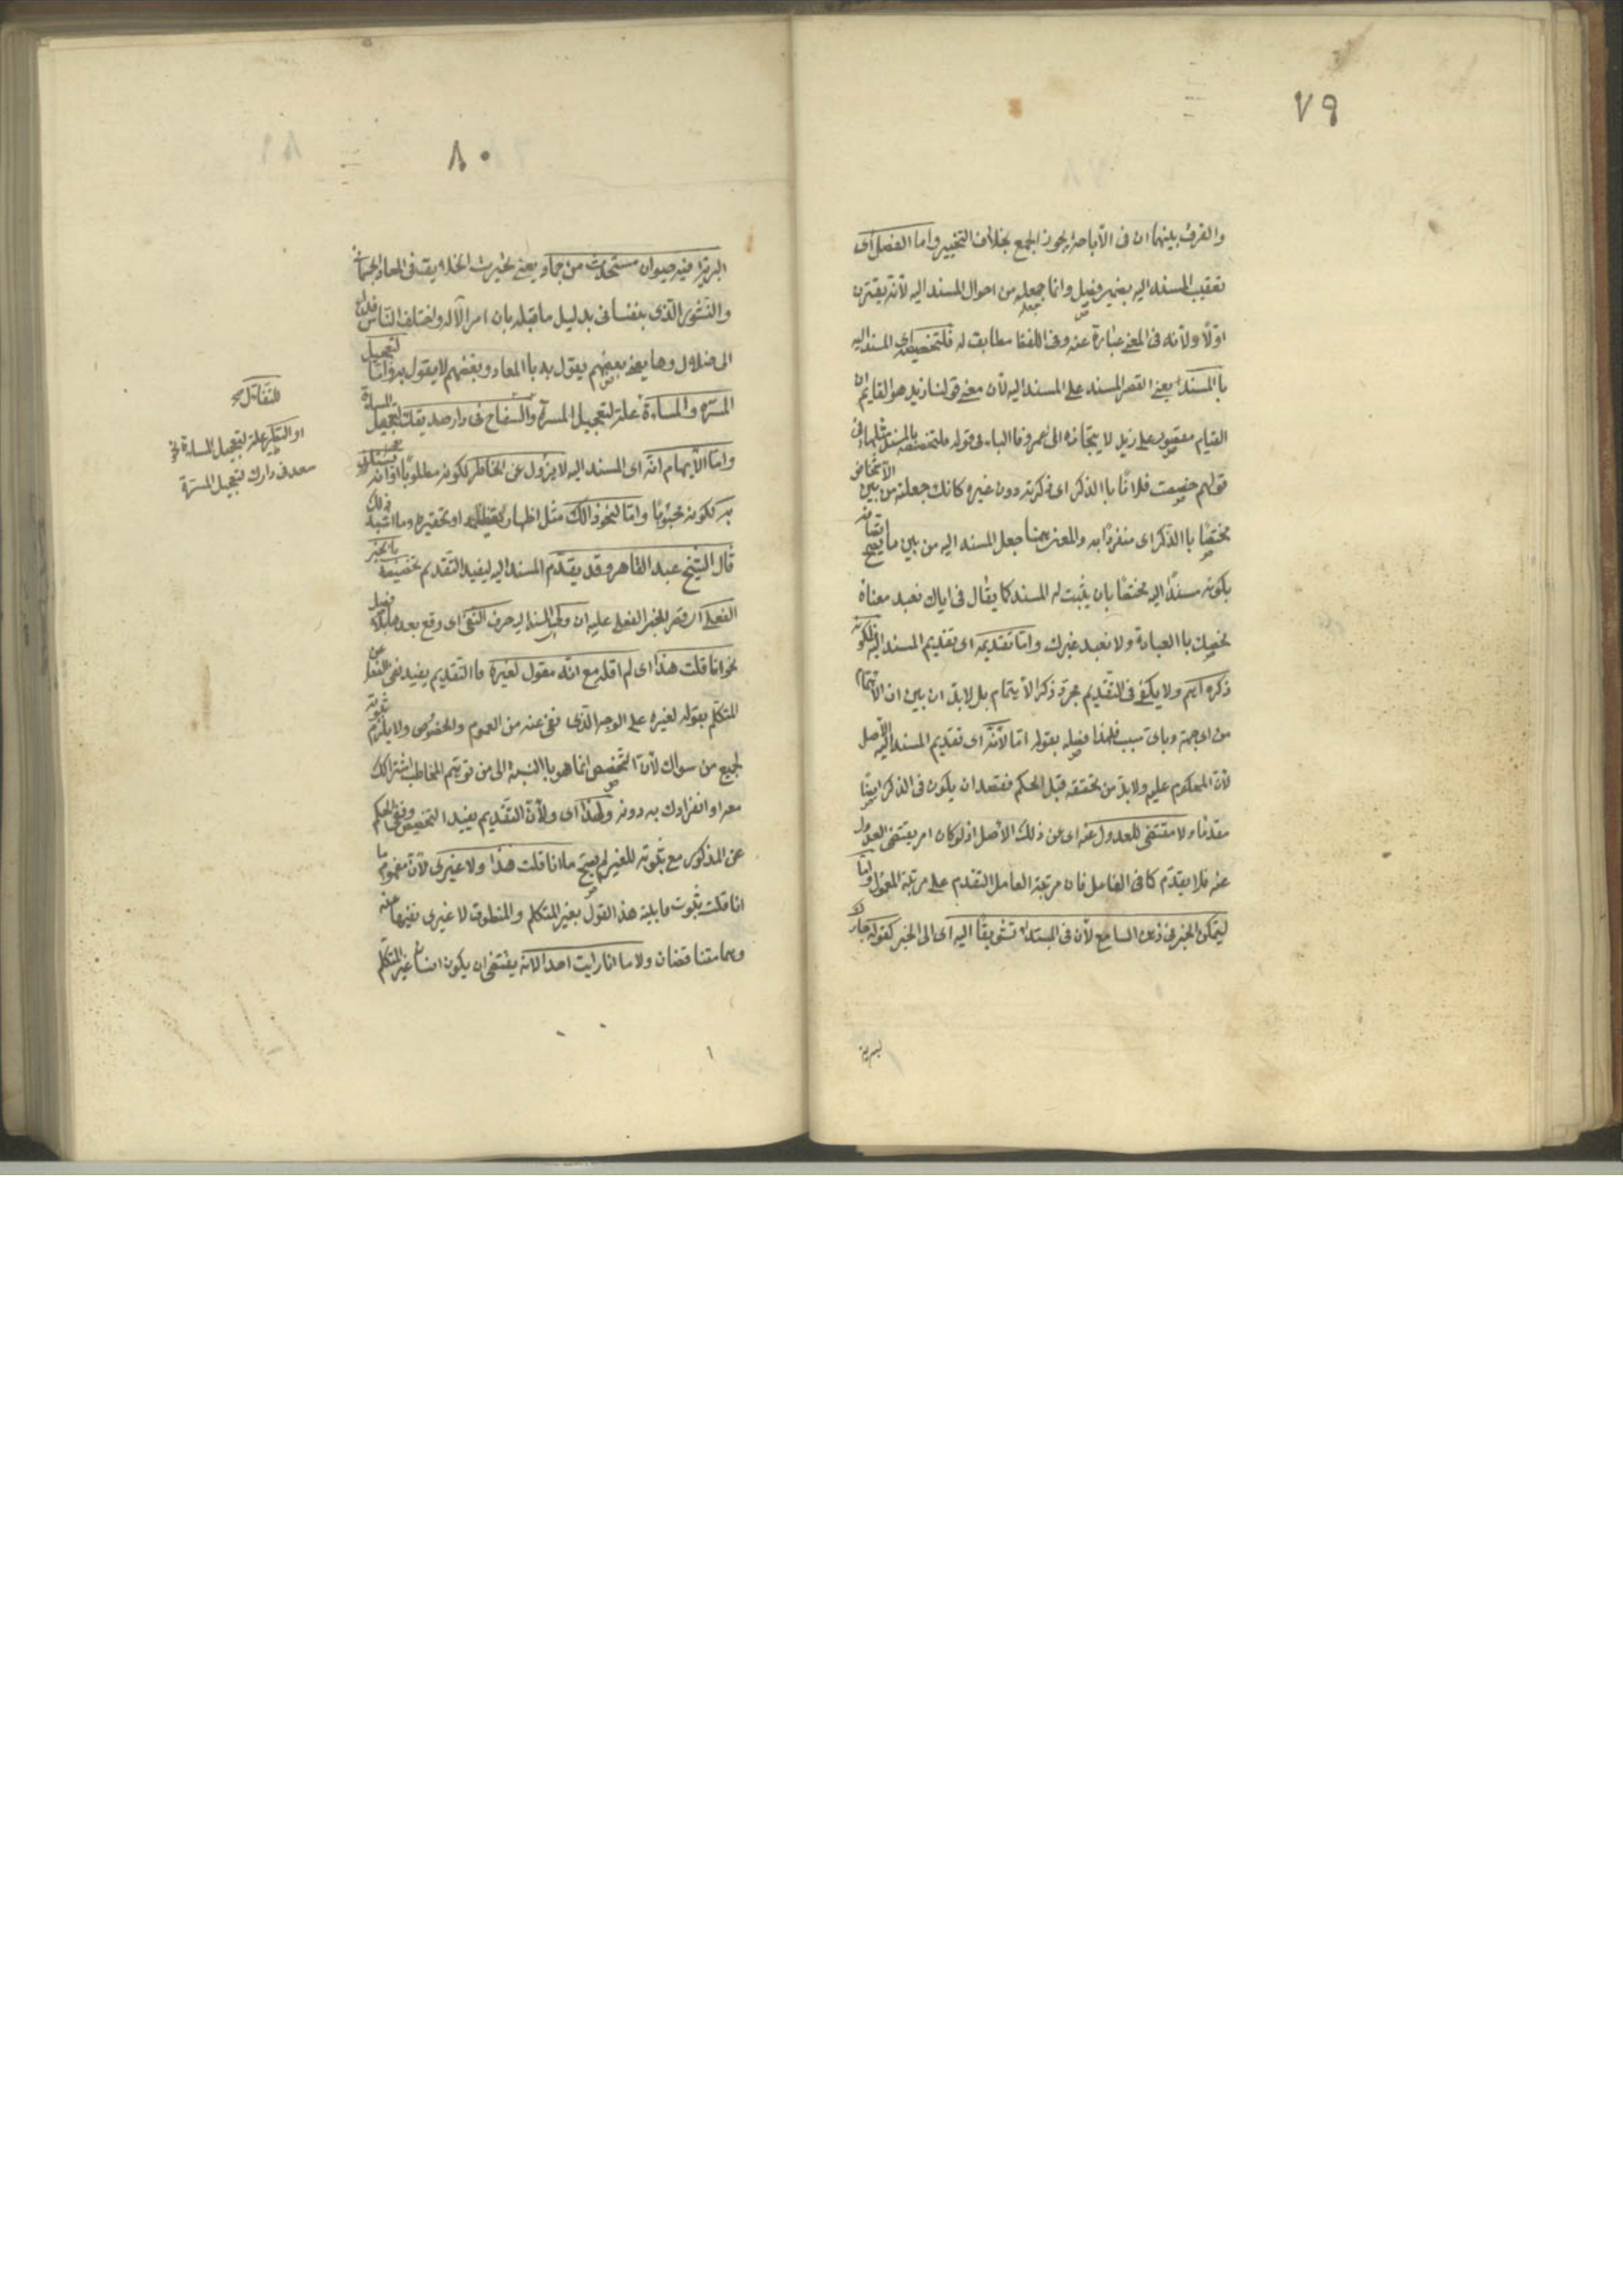 ٧٩
والفرق بينهما ان فى الأباحة يجوز الجمع بخلاف التخيير واما الفصل اى
تعقيب المسند اليه بضمير فصل وانما جعله من احوال المسند اليه لأنه يقترن
اولًا ولأنه فى المعنى عبارة عنه وفى اللفظ مطابق له فلتخصيصه اى المسند اليه
باالمسند يعنى القصر المسند على المسند اليه لأن معنى قولنا زيد هو القايم ان
القيام مقصور على زيد لا يتجاوزه الى عمرو فاالباء فى قوله فلتخصيصه بالمسند مثلها فى
قولهم خصصت فلانًا باالذكر اى ذكرته دون غيره كانك جعلته من بين الأشخاص
مختصًا باالذكر اى منفردًا به والمعنى ههنا جعل المسند اليه من بين ما يصح اتصافه
بكونه مسندًا اليه مختصًا بان يثبت له المسند كما يقال فى اياك نعبد معناه
نخصك باالعبادة ولا نعبد غيرك واما تقديمه اى تقديم المسند اليه فلكونه
ذكره اهم ولا يكفى فى التقديم مجرد ذكر الأهتمام بل لا بد ان يبين ان الأهتمام
من اى جهة وباى سبب فلهذا فصله بقوله اما لأنه اى تقديم المسند اليه الأصل
لأن المحكوم عليه ولا بد من تحققه قبل الحكم فقصد ان يكون فى الذكر ايضًا
مقدمًا ولا مقتضى للعدول عنه اى عن ذلك الأصل اذ لو كان امر يقتضى العدول
عنه فلا يقدم كما فى الفاعل فان مرتبة العامل التقدم على مرتبة المعمول واما
ليتمكن الخبر فى ذهن السامع لأن فى المبتداء تشويقًا اليه اى الى الخبر كقوله
البرية
٨٠
البرية فيه حيوان مستحدث من جماد يعنى تحيرت الخلايق فى المعاد الجسمانى
والنشور الذى بنفسانى بدليل ما قبله بان امر الآله واختلف الناس فداع
الى ضلال وهاد يعنى بعضهم يقول بد باالمعاد وبعضهم لا يقول به واما لتعجيل
المسرة والمساءة علة لتعجيل المسرة والسفاح فى دار صديقك لتعجيل المساءة
واما الأيهام انه اى المسند اليه لا يزول عن الخاطر لكونه مطلوبًا او انه يستلذ
به لكونه محبوبًا واما لنحو ذالك مثل اظهار تعظيمه او تحقيره وما اشبه ذلك
قال الشيخ عبد القاهر وقد يقدم المسند اليه ليفيد التقديم تخصيصه باالخبر
الفعلى اى قصر الخبر الفعلى عليه ان ولى المسند اليه حرف النفى اى وقع بعدها بلا فصل
نحو ما انا قلت هذا اى لم اقله مع انه مقول لغيره فاالتقديم يفيد نفى الفعل عن
المتكلم بقوله لغيره على الوجه الذى نفى عنه من العموم والخصوص ولا يلزم ثبوته
لجميع من سواك لأن التخصيص انما هو باالنسبة الى من توهم المخاطب اشتراكك
معه او انفرادك به دونه ولهذا اى ولأن التقديم يفيد التخصيص ونفى الحكم
عن المذكور مع ثبوته للغير لم يصح ما انا قلت هذا ولا غيرى لأن مفهوم ما
انا قلت ثبوت قابلية هذا القول بغير المتكلم والمنطوق لا غيرى نفيها عنه
وهما متناقضان ولا ما انا رايت احدا لأنه يقتضى ان يكون انسان غير المتكلم
للتفائل صح
او التطير علة لتعجيل المساءة نحو
سعد فى دارك لتعجيل المسرة